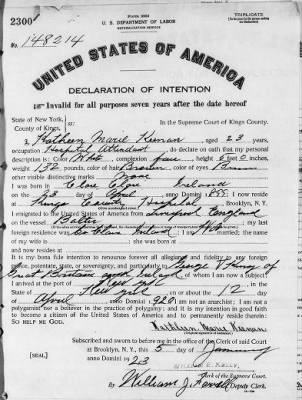 2300
FORM 2203
TRIPLICATE
U. S. DEPARTMENT OF LABOR
NATURALIZATION SERVICE
No. 148214
UNITED STATES OF AMERICA
DECLARATION OF INTENTION
Invalid for all purposes seven years after the date hereof
State of New York, In the Supreme Court of Kings County.
County of Kings,
I, Kathleen Marie Keenan, aged 23 years,
occupation Hospital Attendant, do declare on oath that my personal
description is: Color White, complexion fair, height 5 feet 0 inches,
weight 132 pounds, color of hair Brown, color of eyes
other visible distinctive marks None
I was born in Clare Ireland
on the day of, anno Domini; I now reside
at Kings County Hospital, Brooklyn, N.Y.
I emigrated to the United States of America from Liverpool England
on the vessel Baltic; my last
foreign residence was Ireland; I am not married; the name
of my wife is; she was born at
and now resides at
It is my bona fide intention to renounce forever all allegiance and fidelity to any foreign
prince, potentate, state, or sovereignty, and particularly to George V King of
Great Britain and Ireland, of whom I am now a subject;
I arrived at the port of New York, in the
State of New York, on or about the 12 day
of April, anno Domini 1920; I am not an anarchist; I am not a
polygamist nor a believer in the practice of polygamy; and it is my intention in good faith
to become a citizen of the United States of America and to permanently reside therein:
SO HELP ME GOD.
Kathleen Marie Keenan
Subscribed and sworn to before me in the office of the Clerk of said Court
at Brooklyn, N.Y., this 5 day of January
anno Domini 1923
[SEAL]
WILLIAM E. KELLY
Clerk of the Supreme Court.
By William J., Deputy Clerk.